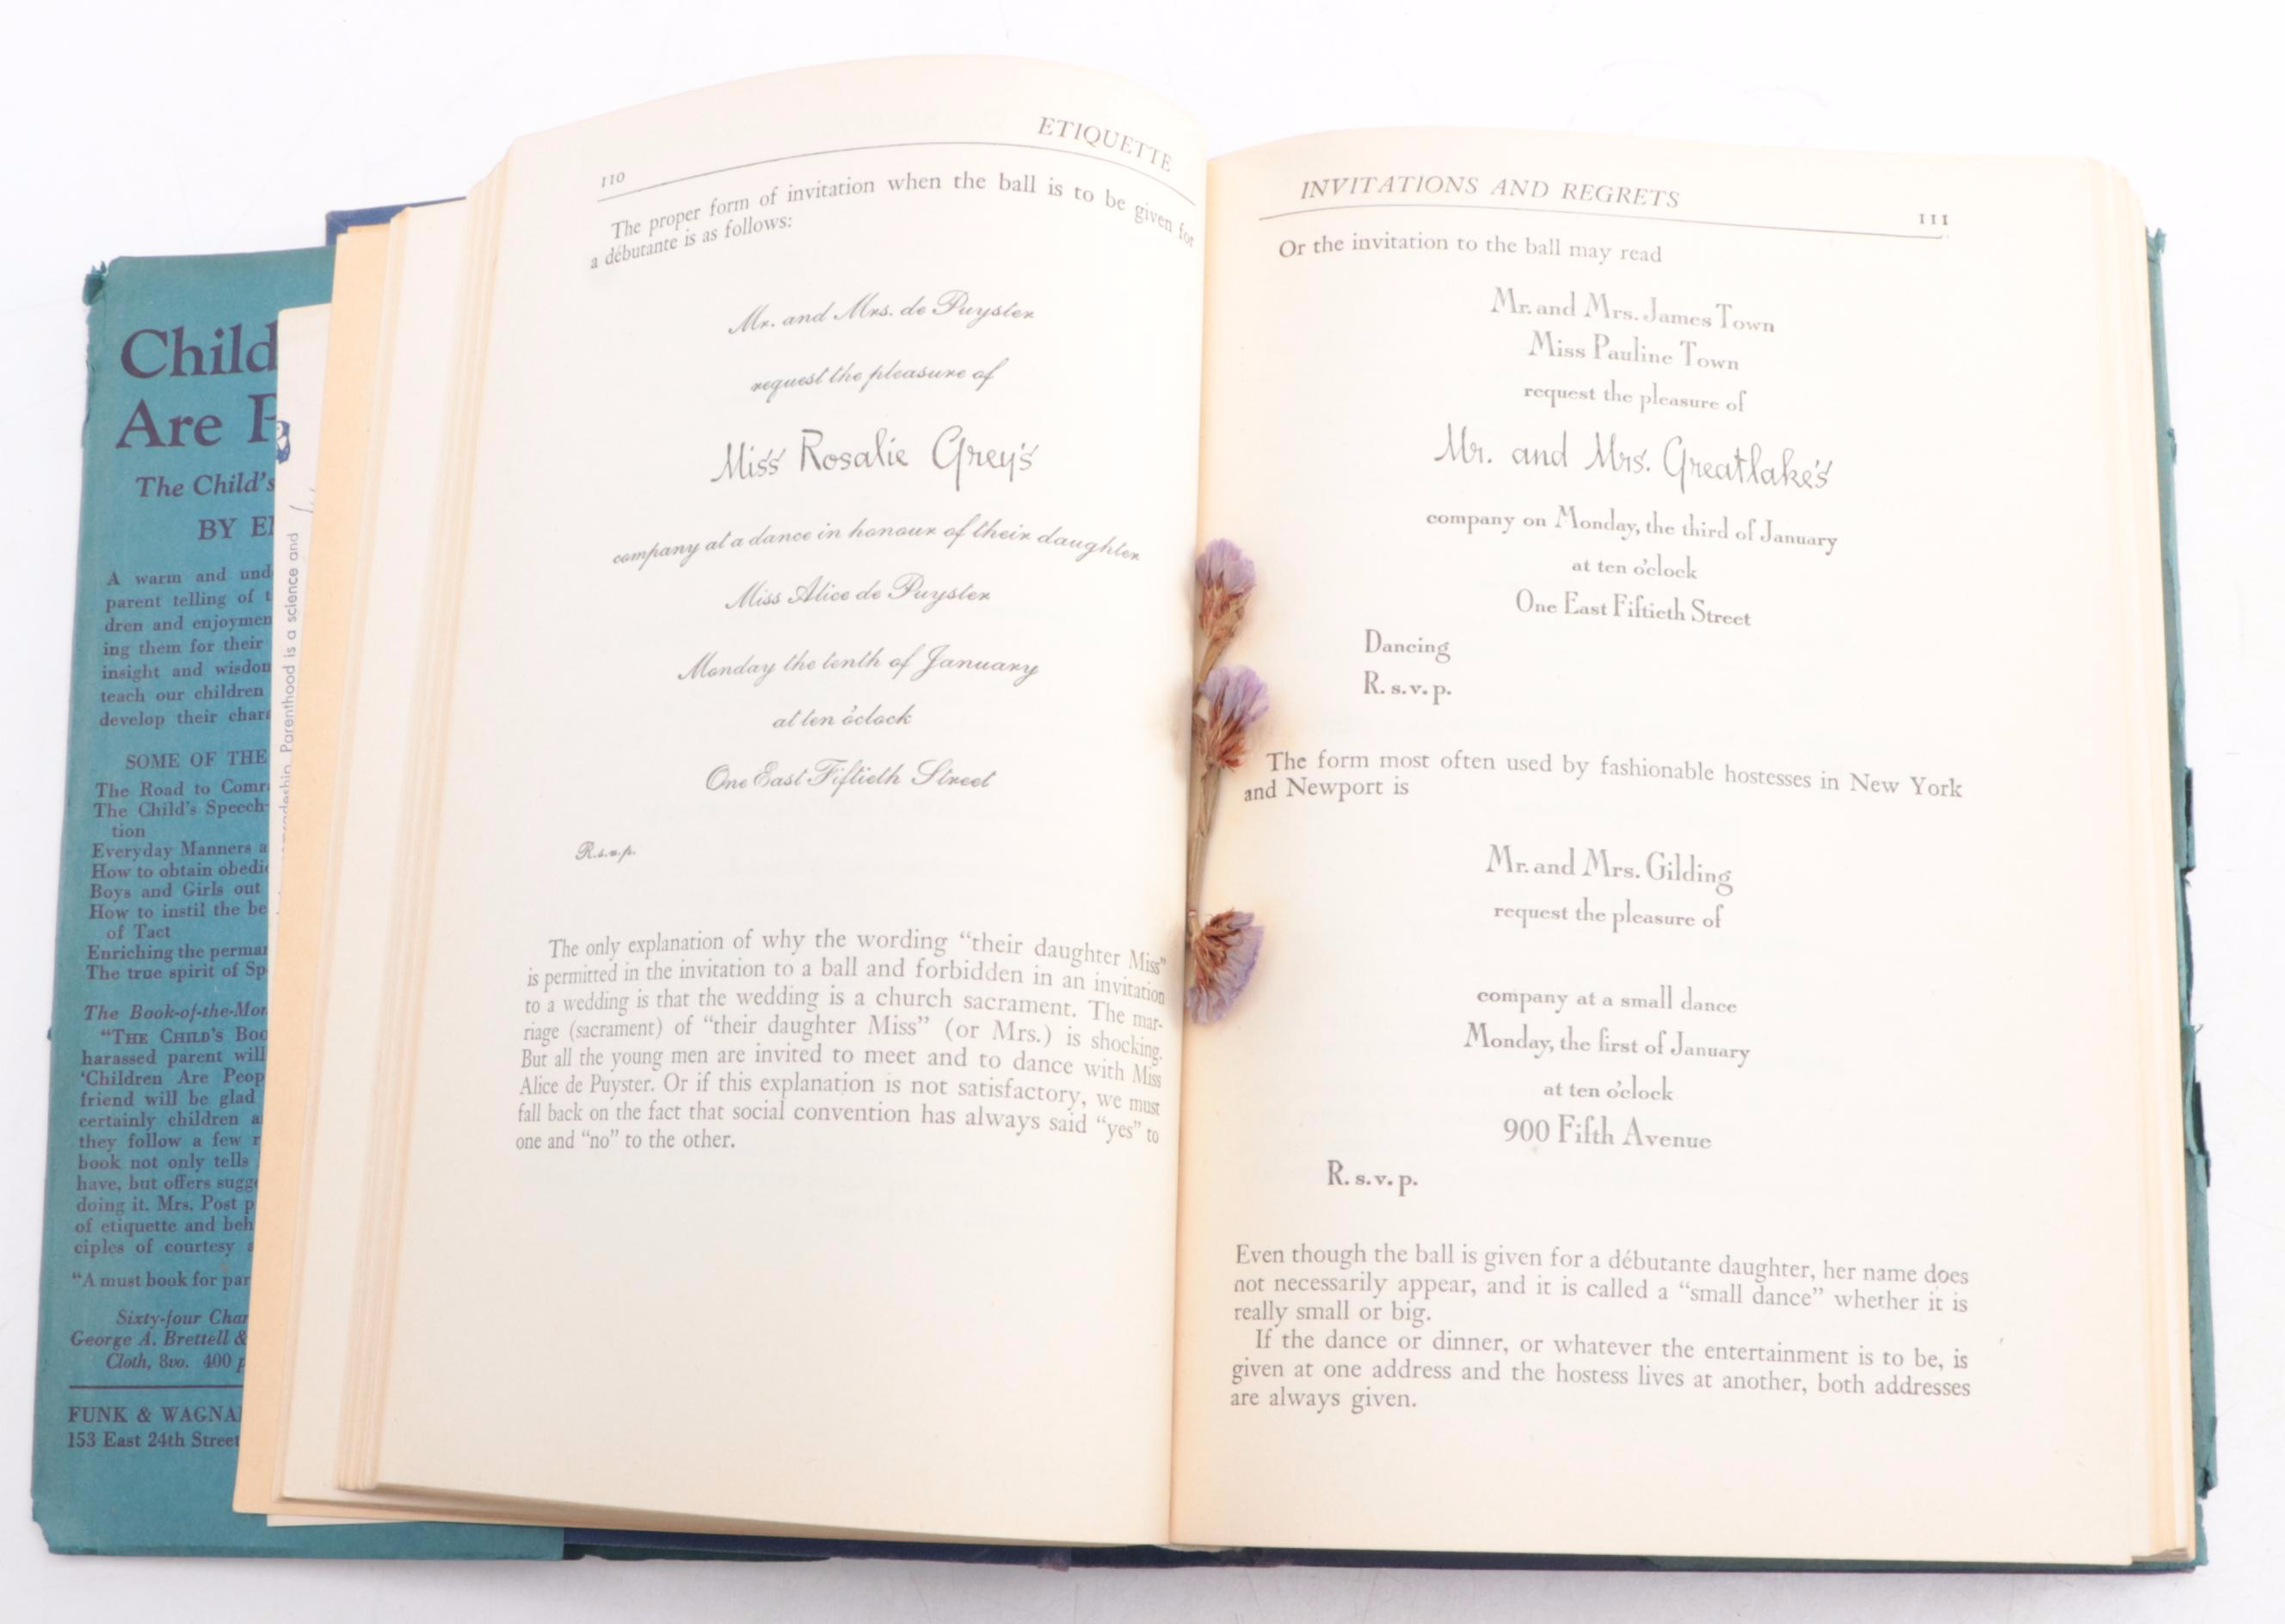 Child
Are
The Child's
BY
A warm and
parent telling of
dren and
ing them for their
insight and wisdom
teach our children
develop their
SOME OF THE
The Road to
The Child's Speech-
tion
Everyday Manners
How to obtain
Boys and Girls out
How to instil the
of Tact
Enriching the
The true spirit of
The Book-of-the-
"THE CHILD'S
harassed parent will
'Children Are
friend will be glad
certainly children
they follow a few
book not only tells
have, but offers
doing it. Mrs. Post
of etiquette and
ciples of courtesy
"A must book for
Sixty-four
George A. Brettell &
Cloth, 8vo. 400
FUNK &
153 East 24th Street
Parenthood is a science and
110
ETIQUETTE
The proper form of invitation when the ball is to be given for
a débutante is as follows:
Mr. and Mrs. de Puyster
request the pleasure of
Miss Rosalie Grey's
company at a dance in honour of their daughter
Miss Alice de Puyster
Monday the tenth of January
at ten o'clock
One East Fiftieth Street
R.s.v.p.
The only explanation of why the wording "their daughter Miss"
is permitted in the invitation to a ball and forbidden in an invitation
to a wedding is that the wedding is a church sacrament. The mar-
riage (sacrament) of "their daughter Miss" (or Mrs.) is shocking.
But all the young men are invited to meet and to dance with Miss
Alice de Puyster. Or if this explanation is not satisfactory, we must
fall back on the fact that social convention has always said "yes" to
one and "no" to the other.
INVITATIONS AND REGRETS
111
Or the invitation to the ball may read
Mr. and Mrs. James Town
Miss Pauline Town
request the pleasure of
Mr. and Mrs. Greatlake's
company on Monday, the third of January
at ten o'clock
One East Fiftieth Street
Dancing
R. s. v. p.
The form most often used by fashionable hostesses in New York
and Newport is
Mr. and Mrs. Gilding
request the pleasure of
company at a small dance
Monday, the first of January
at ten o'clock
900 Fifth Avenue
R. s. v. p.
Even though the ball is given for a débutante daughter, her name does
not necessarily appear, and it is called a "small dance" whether it is
really small or big.
If the dance or dinner, or whatever the entertainment is to be, is
given at one address and the hostess lives at another, both addresses
are always given.